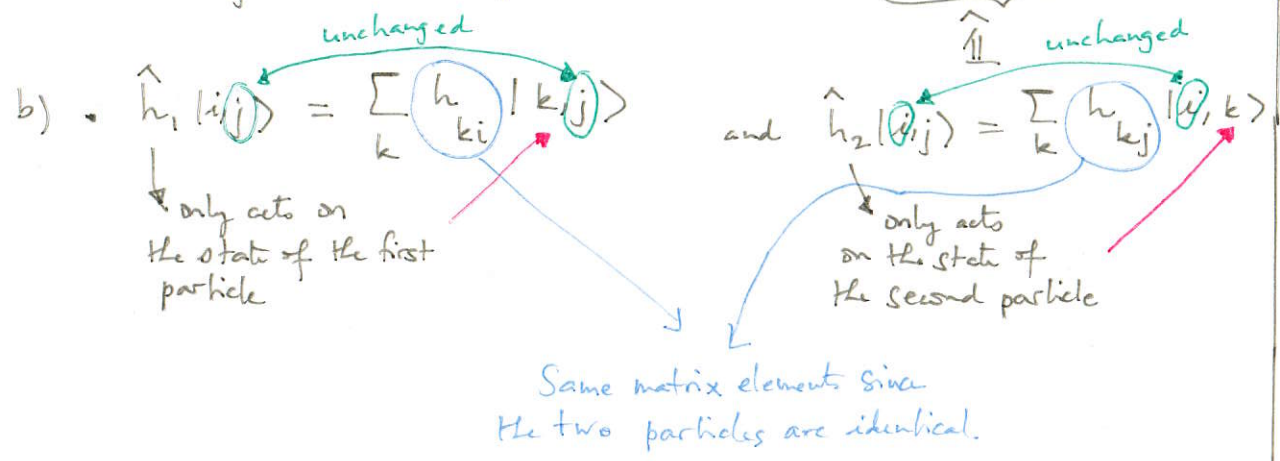 unchanged
𝟙̂
unchanged
b) . ĥ₁ |i,j⟩ = ∑ₖ hₖᵢ |k,j⟩ and ĥ₂|i,j⟩ = ∑ₖ hₖⱼ |i,k⟩
only acts on
the state of the first
particle
only acts
on the state of
the second particle
Same matrix elements since
the two particles are identical.